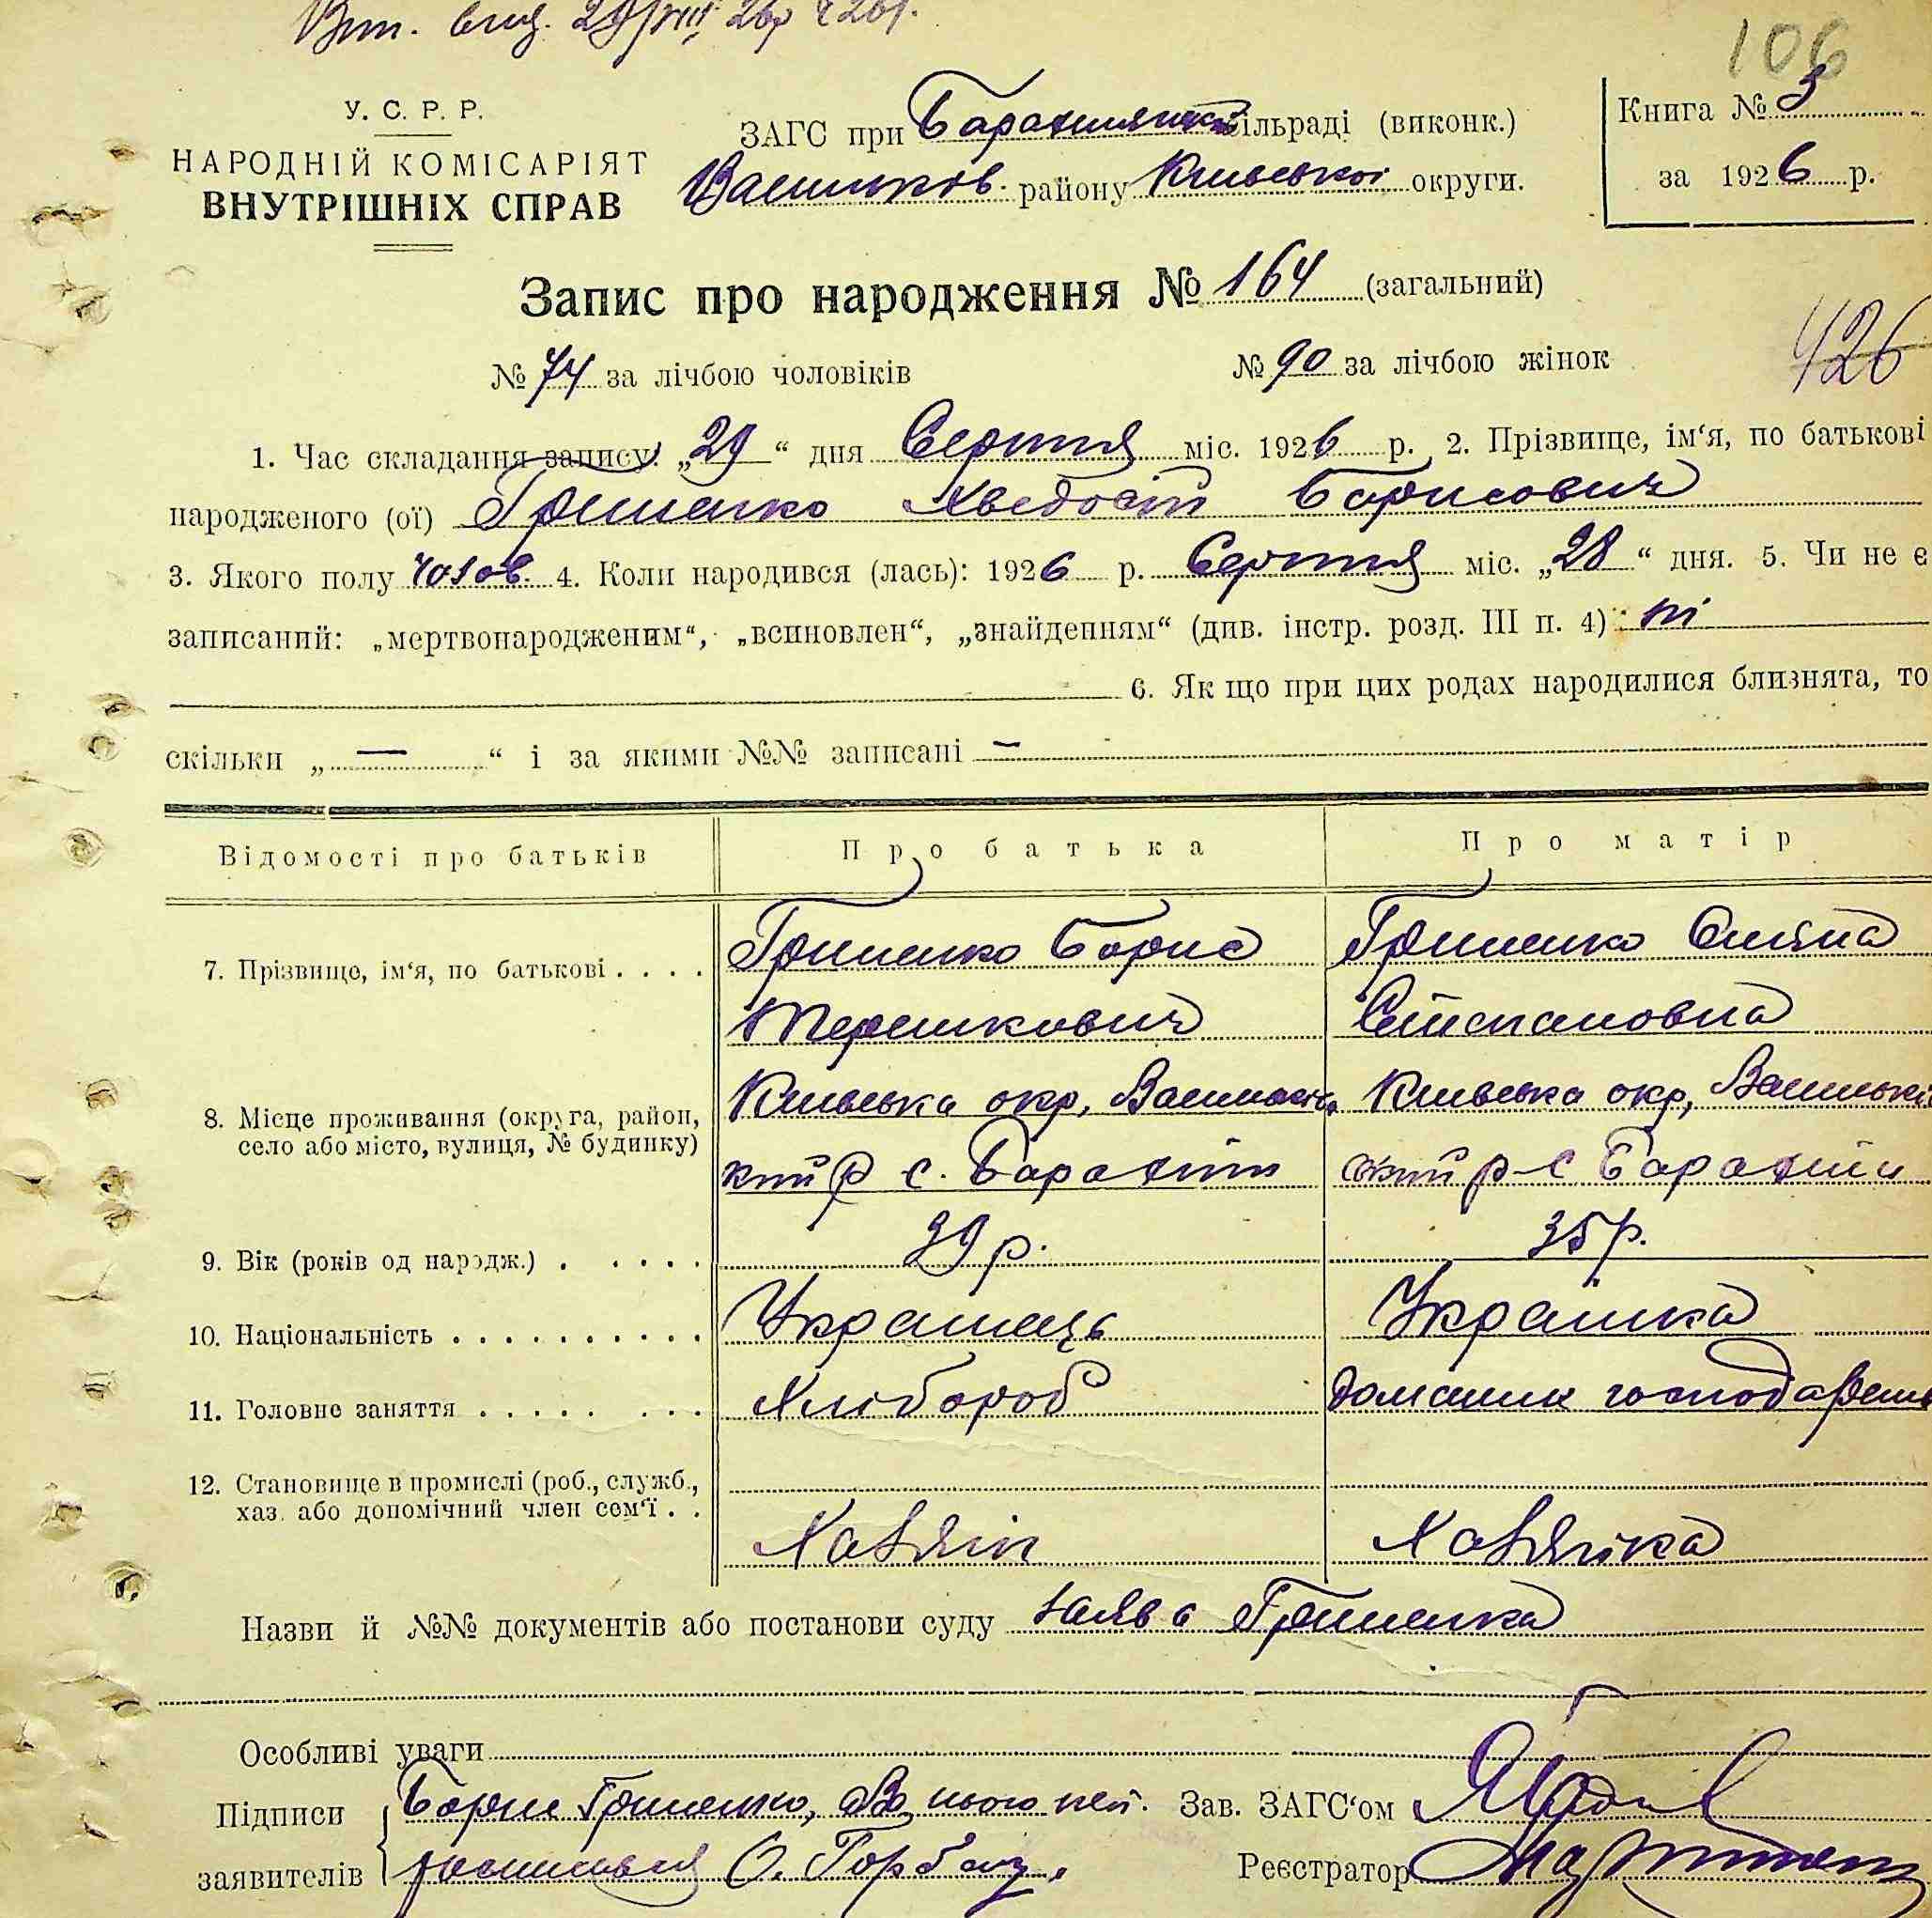 106
У. С. Р. Р.
НАРОДНІЙ КОМІСАРІЯТ
ВНУТРІШНІХ СПРАВ
ЗАГС при Барахтянській сільраді (виконк.)
Васильков. району Київської округи.
Книга № 3
за 1926 р.
Запис про народження № 164 (загальний)
№ 74 за лічбою чоловіків № 90 за лічбою жінок
426
1. Час складання запису: „29“ дня Серпня міс. 1926 р. 2. Прізвище, ім‘я, по батькові
народженого (ої) Гриценко Хведосій Борисович
3. Якого полу чолов. 4. Коли народився (лась): 1926 р. Серпня міс. „28“ дня. 5. Чи не є
записаний: „мертвонародженим“, „всиновлен“, „знайденням“ (див. інстр. розд. III п. 4) ні
6. Як що при цих родах народилися близнята, то
скільки „ — “ і за якими №№ записані —
Відомості про батьків Про батька Про матір
7. Прізвище, ім‘я, по батькові . . . . Гриценко Борис Гриценко Оляна
Терешкович Степановна
8. Місце проживання (округа, район, Київська окр, Васильків Київська окр, Васильків
село або місто, вулиця, № будинку) кий р с. Барахти ський р с Барахти
9. Вік (років од народж.) . . . . . 39 р. 35 р.
10. Національність . . . . . . . . . . Українець Українка
11. Головне заняття . . . . . . . . Хлібороб домашнє господарень
12. Становище в промислі (роб., служб.,
хаз. або допомічний член сем‘ї . . Хазяїн Хазяйка
Назви й №№ документів або постанови суду заява Гриценка
Особливі уваги
Підписи Борис Гриценко, За нього неп. Зав. ЗАГС‘ом
заявителів росписався О. Горбач. Реєстратор